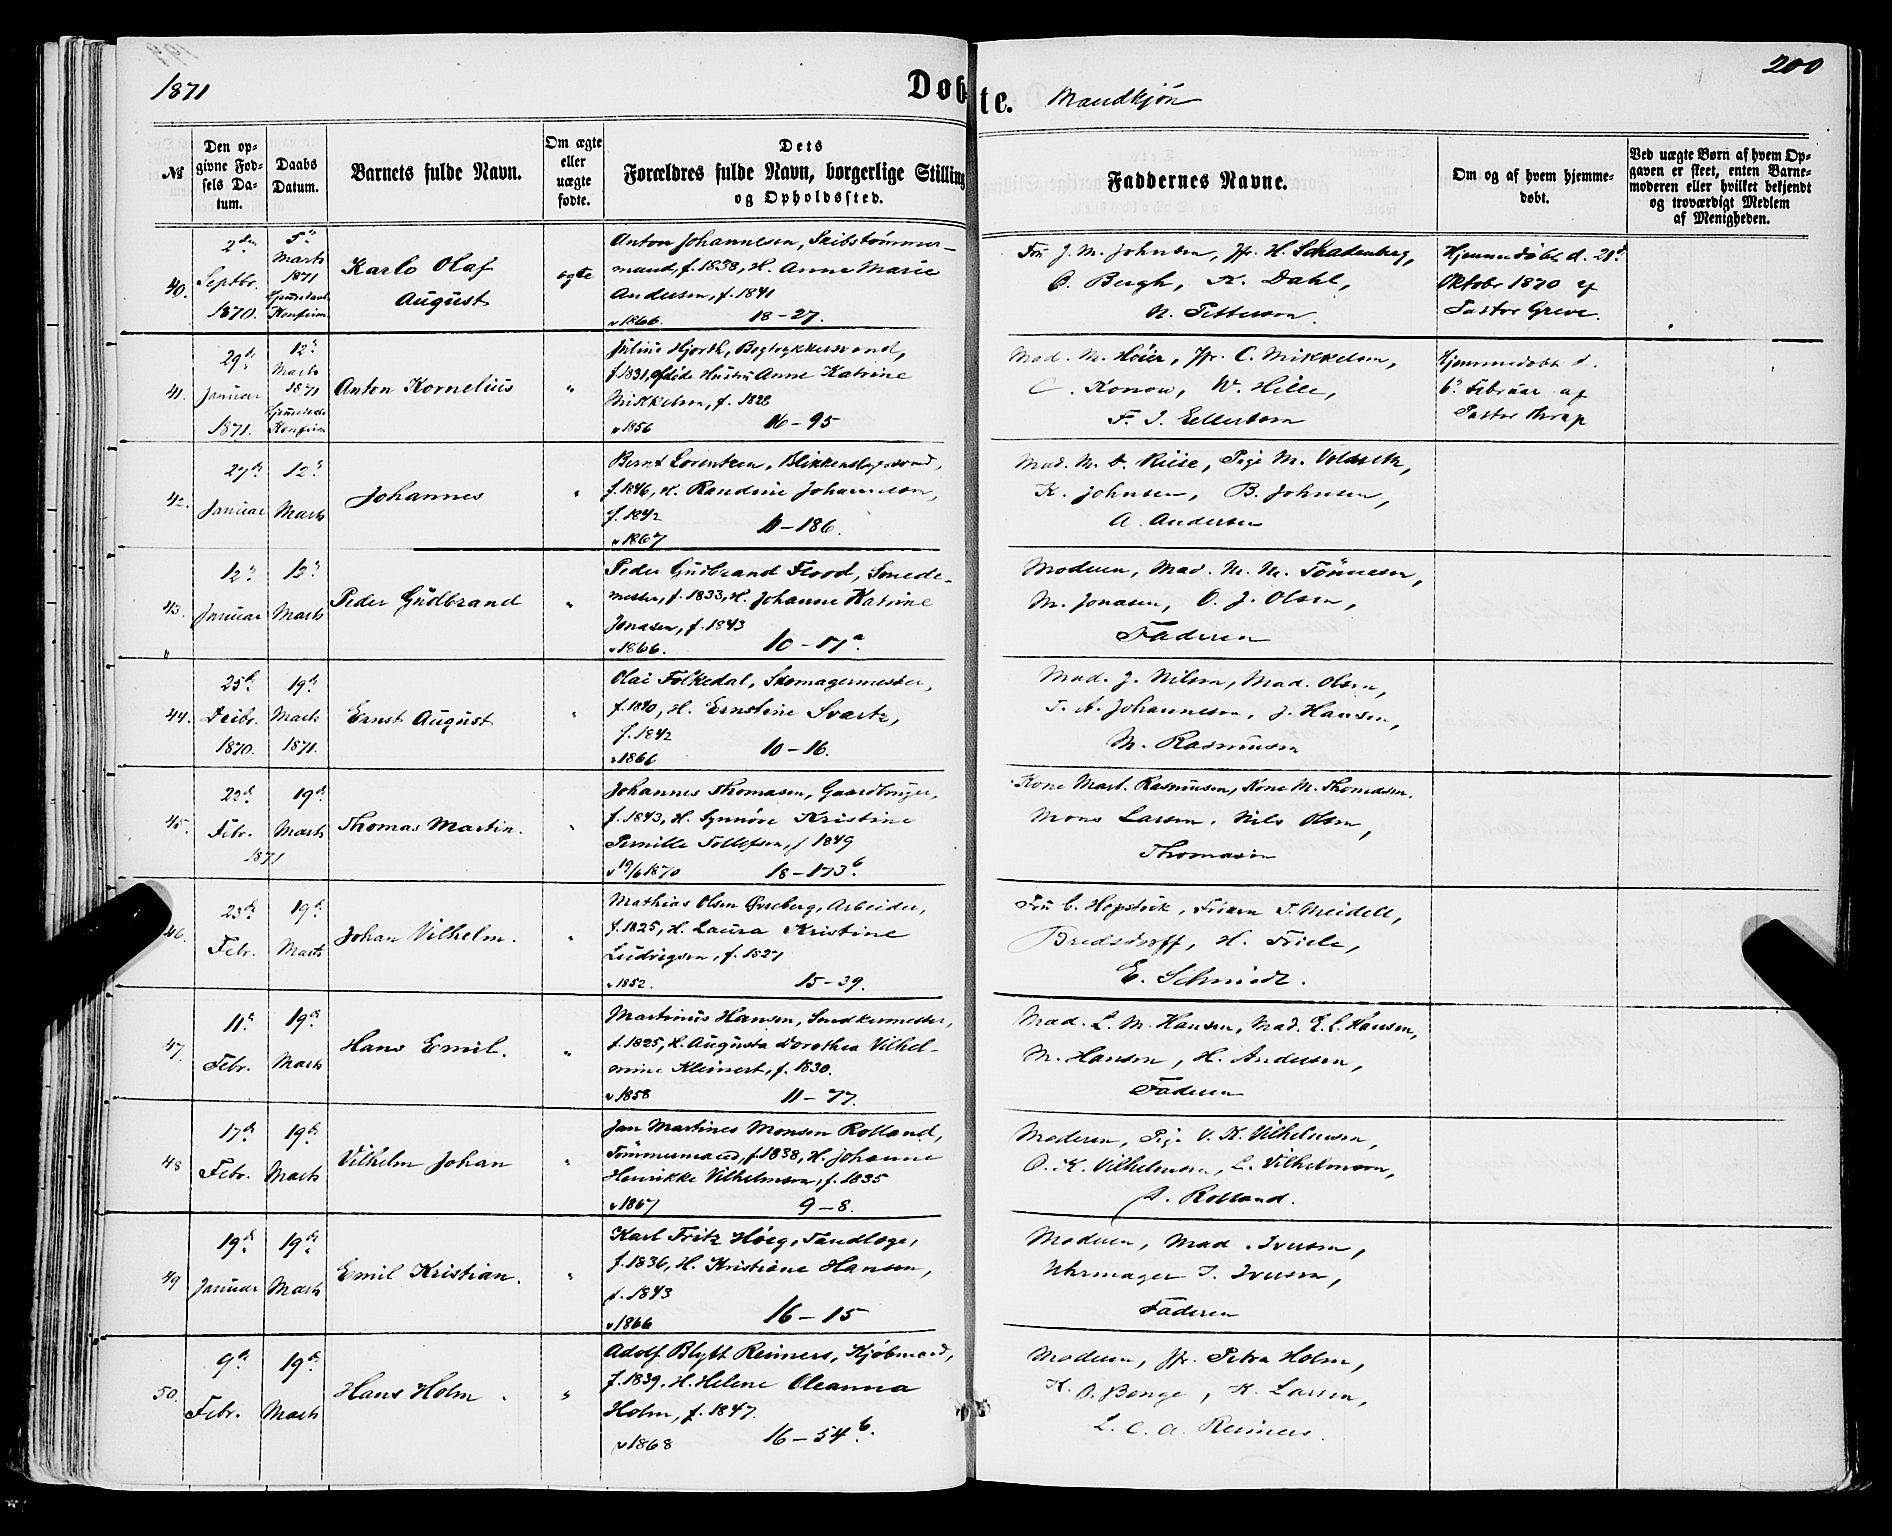 1871
Døbte. Mandkjøn
200
№
Den opgivne Fødsels Datum.
Daabs Datum.
Barnets fulde Navn.
Om ægte eller uægte fødte.
Dets Forældres fulde Navn, borgerlige Stilling og Opholdssted.
Faddernes Navne.
Om og af hvem hjemmedøbt.
Ved uægte Børn af hvem Opgaven er skeet, enten Barnemoderen eller hvilket bekjendt og troværdigt Medlem af Menigheden.
40.
2den Septbr. 1870.
5te Marts 1871
Karlo Olaf
August
ægte
Anton Johannesen, Skibstømmer-
mand, f. 1838, H. Anne Marie
Andersen, f. 1841
v 1866. 18-27.
Fru J. M. Johnsen, Jfr. H. Schadenberg,
C. Bergh, K. Dahl,
N. Pettersen.
Hjemmedøbt d. 21d
Oktobr 1870 af
Pastor Greve.
41.
29d Januar 1871.
12d Marts 1871
Anton Kornelius
"
Julius Hjorth, Bogtrykkersvend,
f 1831, afdøde Hustru Anne Katrine
Mikkelsen, f. 1828
v 1856 16-95
Mad. M. Høier, Jfr. C. Mikkelsen,
C. Konow, W. Hille,
F. J. Ellerbom
Hjemmedøbt d.
6d Februar af
Pastor Thrap
42.
27d Januar
12d Marts
Johannes
"
Bernt Lorentzen, Blikkenslagersvend,
f. 1846, H. Randine Johannesen,
f. 1842
v 1867 11-186.
K. Johnsen, B. Johnsen,
A. Andersen
43.
12d Januar
13d Marts
Peder Gudbrand
"
Peder Gudbrand Flood, Smede-
mester, f. 1833, H. Johanne Katrine
Jonasen, f. 1843
v 1866. 10-17a.
Moderen, Mad. M. M. Tønnesen,
M. Jonasen, O. J. Olsen,
Faderen
44.
25d Decbr. 1870.
19d Marts 1871.
Ernst August
"
Olai Folkedal, Skomagermester,
f. 1840, H. Ernstine Svartz,
f. 1842
v 1866 10-16.
Mad. J. Nilsen, Mad. Olsen,
T. A. Johannesen, J. Hansen,
M. Rasmusen
45.
22d Febr. 1871
19d Marts
Thomas Martin.
"
Johannes Thomasen, Gaardbruger,
f. 1843, H. Synnøve Kristine
Pernille Tollefsen, f 1849
v 19/6 1870 18-173b.
Kone Mart. Rasmusen, Kone M. Thomasen.
Mons Larsen, Nils Olsen,
Thomasen
46.
23d Febr.
19d Marts
Johan Vilhelm.
"
Mathias Olsen Øvreberg, Arbeider,
f. 1825, H. Laura Kristine
Ludvigsen, f. 1827
v 1852. 15-39.
Fru C. Hopstock, Frøken T. Meidell,
Bredsdorff, H. Friele,
E. Schmidt.
47.
11d Febr.
19d Marts
Hans Emil.
"
Martinus Hansen, Snedkermester,
f. 1825, H. Augusta Dorothea Vilhel-
mine Kleinert, f. 1830.
v 1858 11-77.
Mad. L. M. Hansen, Mad. E. C. Hansen,
M. Hansen, H. Andersen,
Faderen
48
17d Febr.
19d Marts
Vilhelm Johan
"
Jan Martines Monsen Rolland,
Tømmermand, f. 1838, H. Johanne
Henrikke Vilhelmsen, f. 1835
v 1867 9-8.
Moderen, Pige V. K. Vilhelmsen,
O. K. Vilhelmsen, L. Vilhelmsen,
J. Rolland.
49
19d Januar
19d Marts
Emil Kristian.
"
Karl Fritz Høeg, Tandlæge,
f. 1836, H. Kristiane Hansen,
f. 1843
v 1866 16-15
Moderen, Mad. Iversen,
Uhrmager I. Iversen,
Faderen
50.
9d Febr.
19d Marts
Hans Holm
"
Adolf Blytt Reimers, Kjøbmand,
f. 1839. H. Helene Oleanna
Holm, f. 1847.
v 1868 16-54b.
Moderen, Jfr. Petra Holm,
K. O. Bonge, K. Larsen,
L. C. A. Reimers.